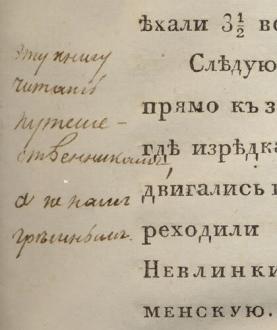 эту книгу
читать
путеше-
ственникамъ,
а не намъ
грѣшнымъ.
ѣхали 3½ вс
Слѣдую
прямо къ з
гдѣ изрѣдка
двигались и
реходили
Невлинки
менскую.